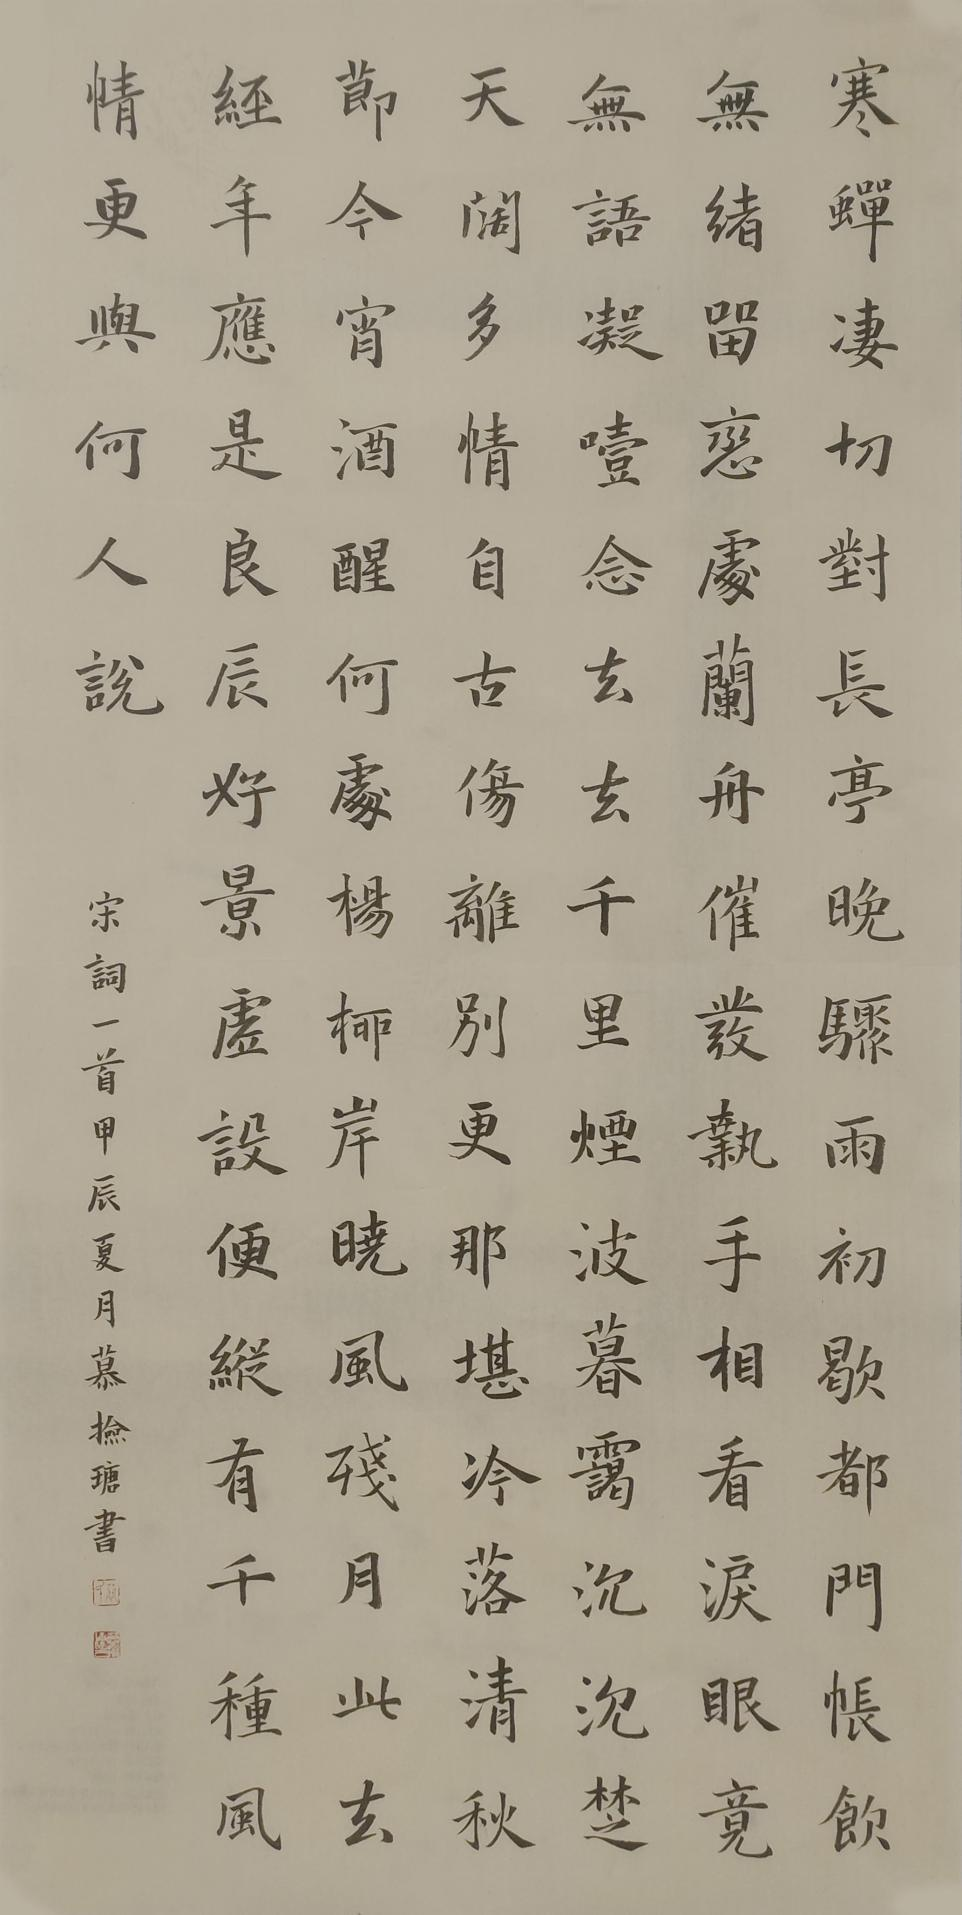 寒蟬凄切對長亭晚驟雨初歇都門帳飲
無緒留戀處蘭舟催發執手相看淚眼竟
無語凝噎念去去千里煙波暮靄沉沉楚
天闊多情自古傷離別更那堪冷落清秋
節今宵酒醒何處楊柳岸曉風殘月此去
經年應是良辰好景虛設便縱有千種風
情更與何人說
宋詞一首甲辰夏月慕撿瑭書